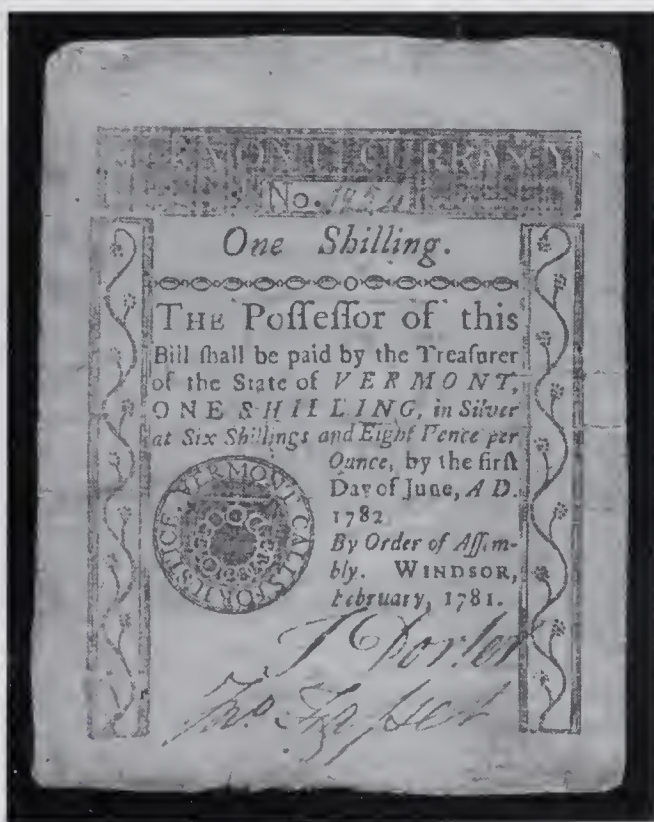 VERMONT CURRENCY.
No. 1954
One Shilling.
THE Poſſeſſor of this
Bill ſhall be paid by the Treaſurer
of the State of VERMONT,
ONE SHILLING, in Silver
at Six Shillings and Eight Pence per
Ounce, by the firſt
Day of June, A D.
1782
By Order of Aſſem-
bly. WINDSOR,
February, 1781.
VERMONT CALLS FOR JUSTICE.
T Porter
Jno. Faſſet